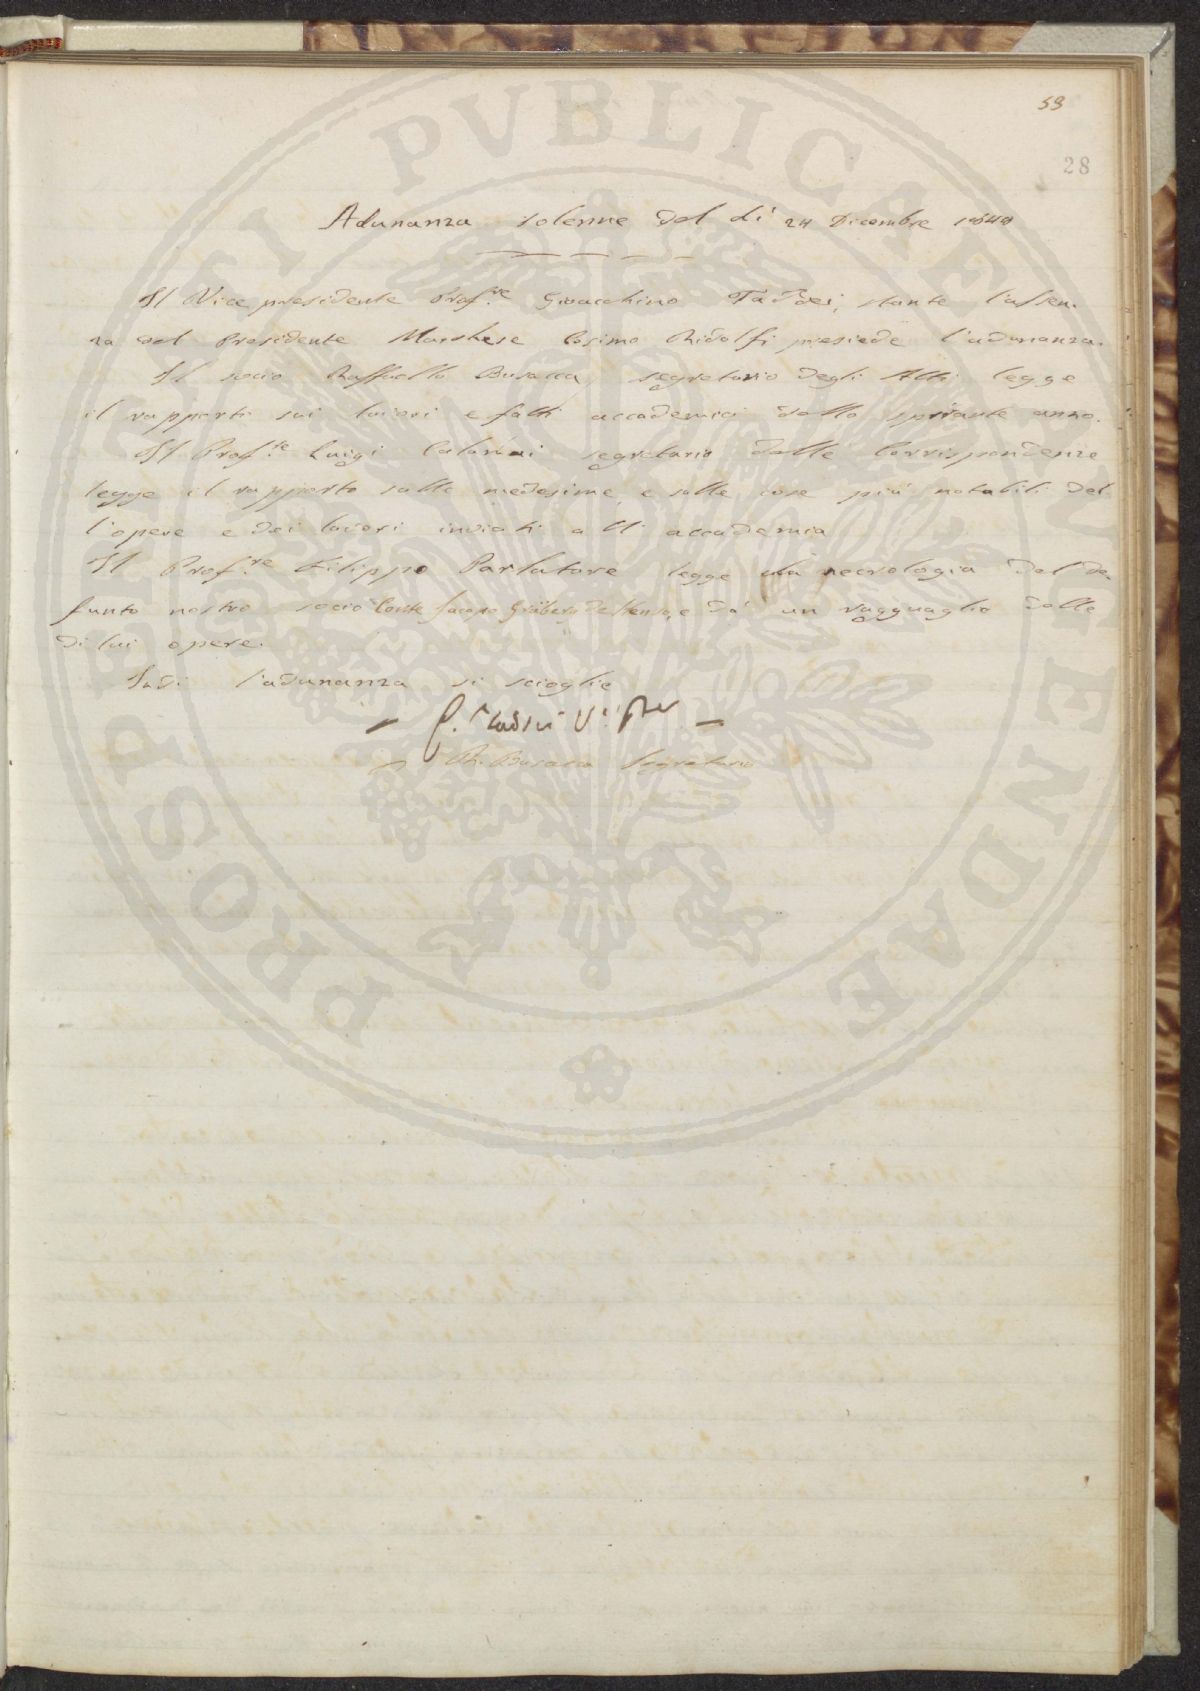 59
28
Adunanza solenne del dì 24 Dicembre 1848
Il Vice presidente Prof.re Gioacchino Taddei, stante l'assen-
za del Presidente Marchese Cosimo Ridolfi presiede l'adunanza.
Il socio Raffaello Busacca segretario degli Atti legge
il rapporto sui lavori e fatti accademici dello spirante anno.
Il Prof.re Luigi Calamai segretario delle Corrispondenze
legge il rapporto sulle medesime, e sulle cose più notabili del
l'opere e dei lavori inviati all' accademia
Il Prof.re Filippo Parlatore legge una necrologia del de-
funto nostro socio Conte Jacopo Gräberg de Hemsö, e dà un ragguaglio delle
di lui opere.
Indi l'adunanza si scioglie
G. Taddei V. Pte
R. Busacca Segretario
PROSPERITATI PVBLICAE AVGENDAE